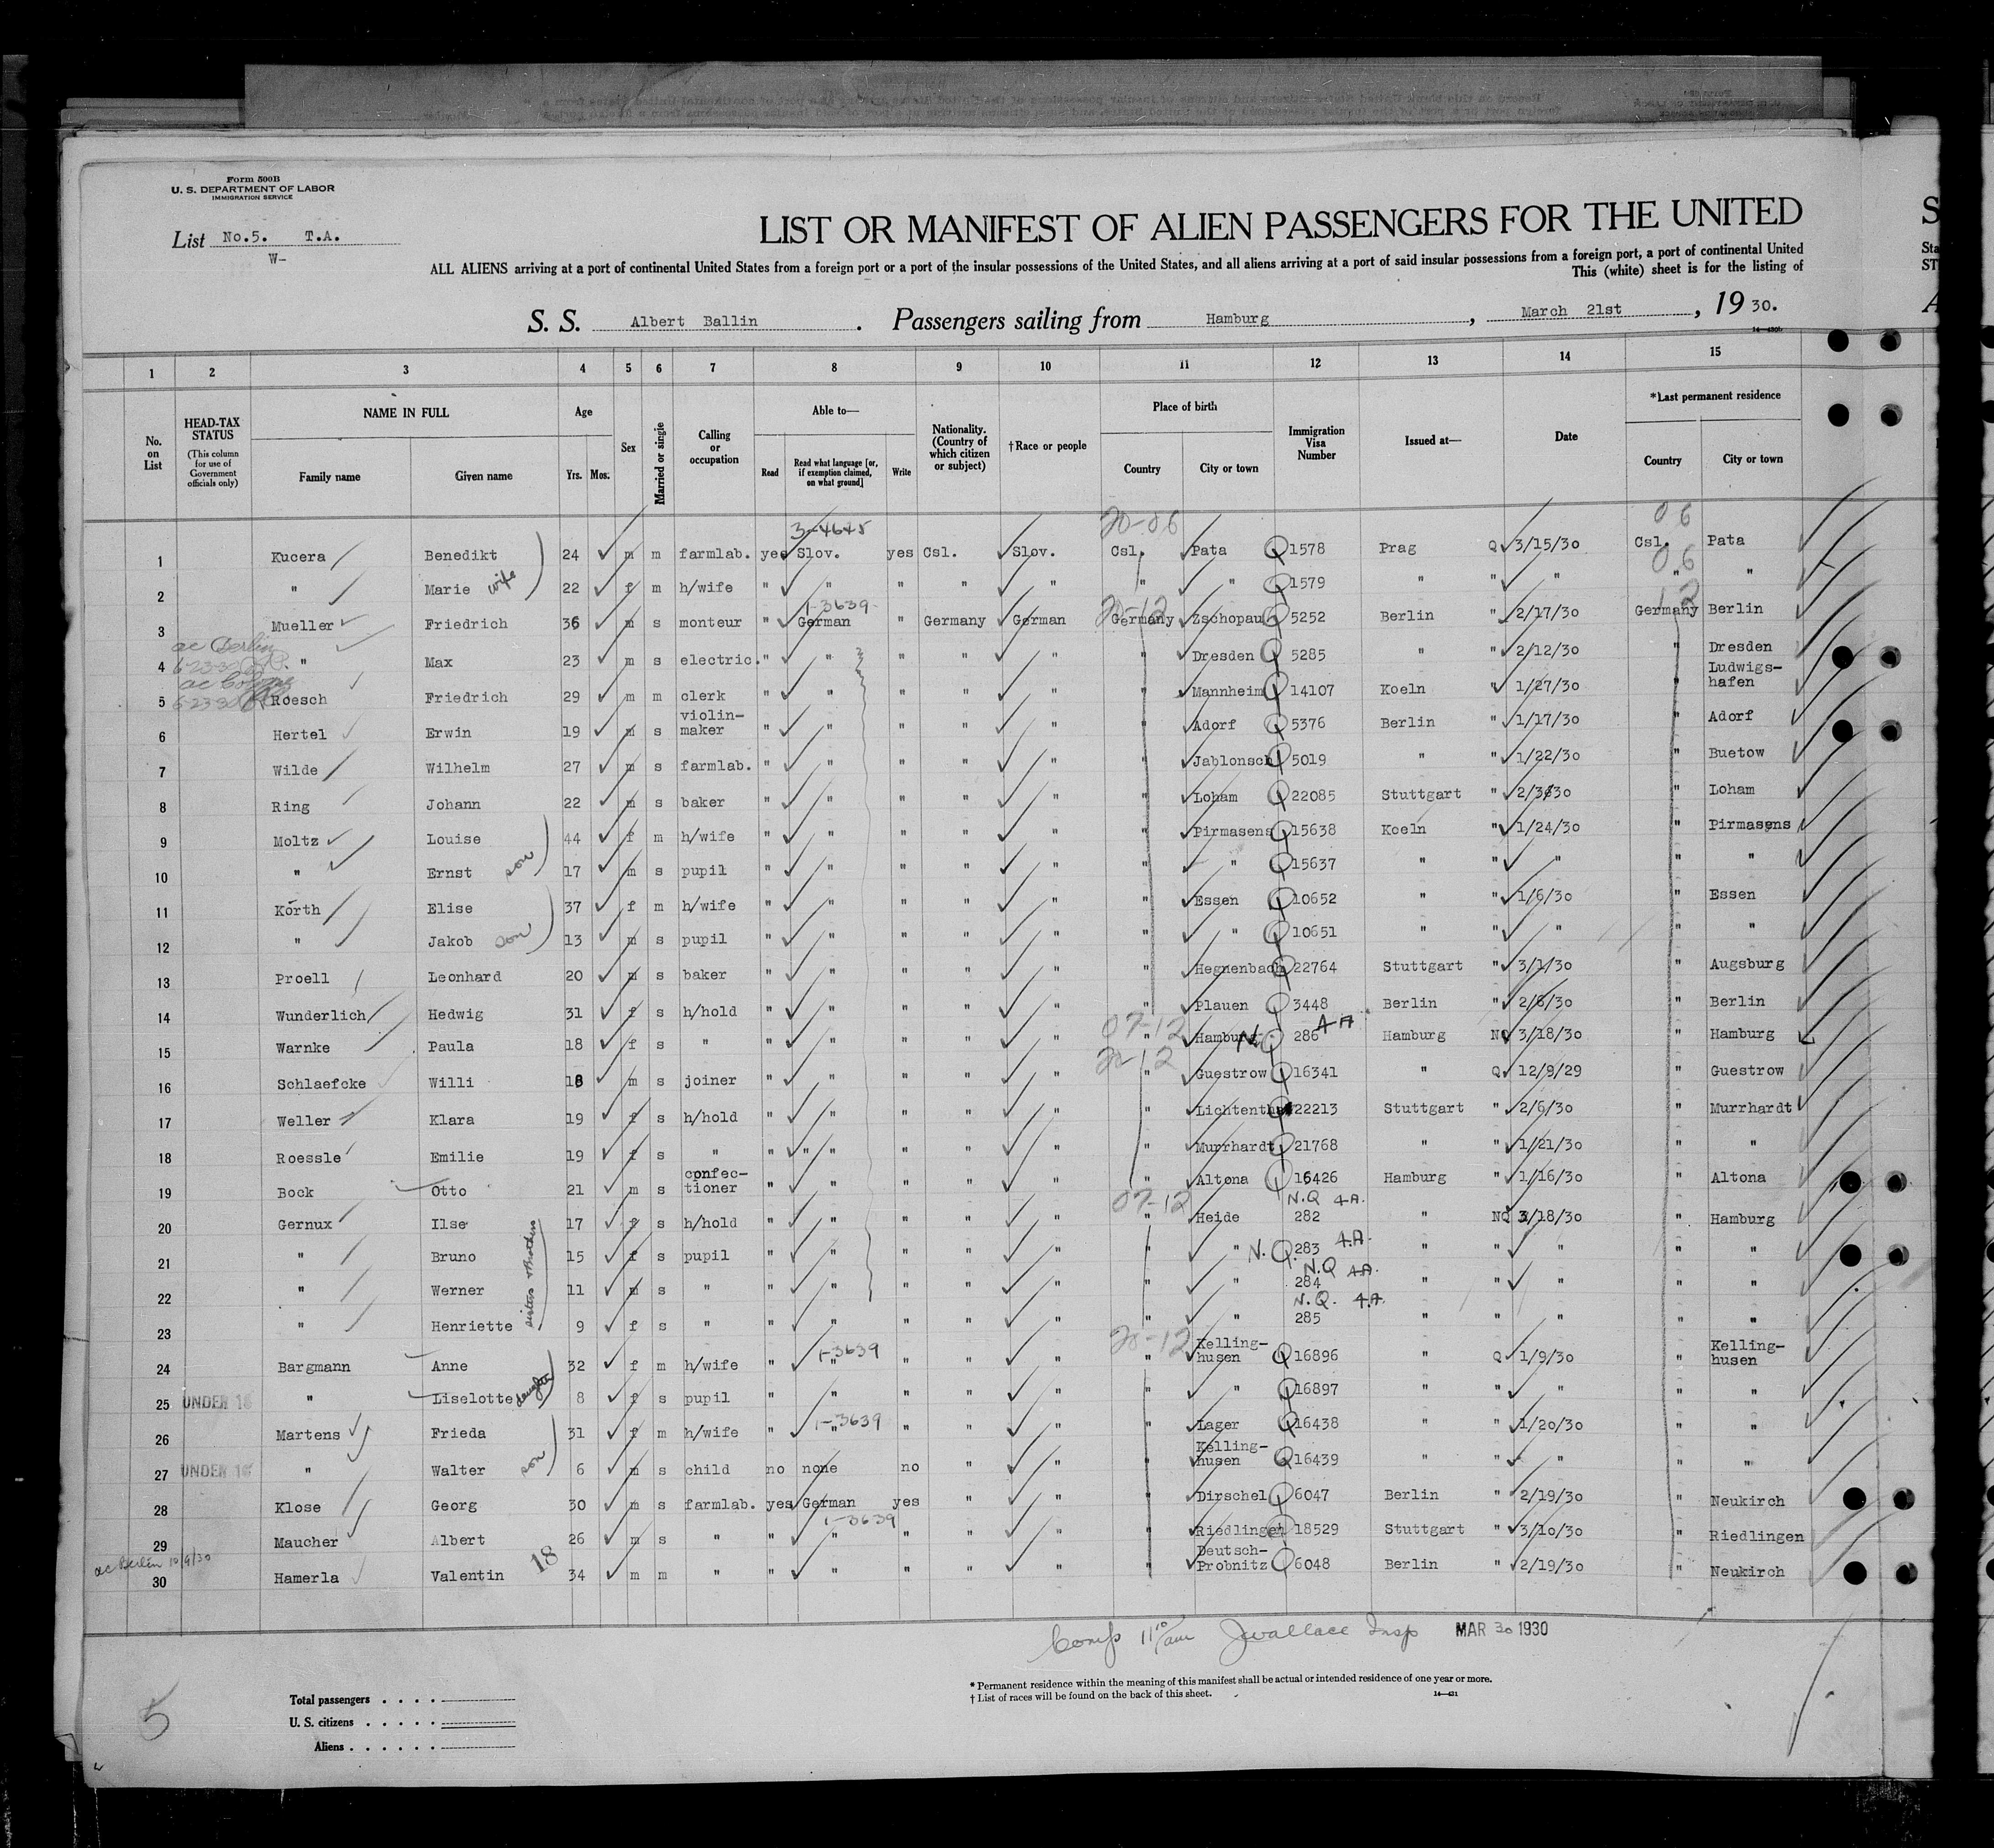 Form 500B
U. S. DEPARTMENT OF LABOR
IMMIGRATION SERVICE
List No.5. T.A.
W-
LIST OR MANIFEST OF ALIEN PASSENGERS FOR THE UNITED
ALL ALIENS arriving at a port of continental United States from a foreign port or a port of the insular possessions of the United States, and all aliens arriving at a port of said insular possessions from a foreign port, a port of continental United
This (white) sheet is for the listing of
S. S. Albert Ballin . Passengers sailing from Hamburg , March 21st , 19 30.
1 2 3 4 5 6 7 8 9 10 11 12 13 14 15
No. on List
HEAD-TAX STATUS (This column for use of Government officials only)
NAME IN FULL
Family name Given name
Age
Yrs. Mos.
Sex
Married or single
Calling or occupation
Able to—
Read Read what language [or, if exemption claimed, on what ground] Write
Nationality. (Country of which citizen or subject)
†Race or people
Place of birth
Country City or town
Immigration Visa Number
Issued at—
Date
*Last permanent residence
Country City or town
3-4645 20-06 06
1 Kucera Benedikt 24 m m farmlab. yes Slov. yes Csl. Slov. Csl. Pata Q 1578 Prag Q 3/15/30 Csl. Pata
06
2 " Marie wife 22 f m h/wife " " " " " " " Q 1579 " " " " "
1-3639 20-12 12
3 Mueller Friedrich 36 m s monteur " German " Germany German Germany Zschopau Q 5252 Berlin " 2/17/30 Germany Berlin
ac Berlin
6-23-30
4 " Max 23 m s electric. " " " " " " Dresden Q 5285 " " 2/12/30 " Dresden
6-23-30
5 Roesch Friedrich 29 m m clerk " " " " " " Mannheim Q 14107 Koeln " 1/27/30 " Ludwigs-hafen
6 Hertel Erwin 19 m s violin-maker " " " " " " Adorf Q 5376 Berlin " 1/17/30 " Adorf
7 Wilde Wilhelm 27 m s farmlab. " " " " " " Jablonsch Q 5019 " " 1/22/30 " Buetow
8 Ring Johann 22 m s baker " " " " " " Loham Q 22085 Stuttgart " 2/3/30 " Loham
9 Moltz Louise 44 f m h/wife " " " " " " Pirmasens Q 15638 Koeln " 1/24/30 " Pirmasens
10 " Ernst son 17 m s pupil " " " " " " " Q 15637 " " " " "
11 Korth Elise 37 f m h/wife " " " " " " Essen Q 10652 " " 1/6/30 " Essen
12 " Jakob son 13 m s pupil " " " " " " " Q 10651 " " " " "
13 Proell Leonhard 20 m s baker " " " " " " Hegnenbach Q 22764 Stuttgart " 3/1/30 " Augsburg
14 Wunderlich Hedwig 31 f s h/hold " " " " " " Plauen Q 3448 Berlin " 2/6/30 " Berlin
07-12 4A
15 Warnke Paula 18 f s " " " " " " " Hamburg NQ 286 Hamburg NQ 3/18/30 " Hamburg
20-12
16 Schlaefcke Willi 18 m s joiner " " " " " " Guestrow Q 16341 " Q 12/9/29 " Guestrow
17 Weller Klara 19 f s h/hold " " " " " " Q 22213 Stuttgart " 2/6/30 " Murrhardt
18 Roessle Emilie 19 f s " " " " " " " " Murrhardt Q 21768 " " 1/21/30 " "
19 Bock Otto 21 m s confec-tioner " " " " " " Altona Q 16426 Hamburg " 1/16/30 " Altona
07-12 N.Q 4A.
20 Gernux Ilse 17 f s h/hold " " " " " " Heide 282 " NQ 3/18/30 " Hamburg
21 " Bruno 15 f s pupil " " " " " " " N.Q. 283 4A. " " " " "
N.Q 4A.
22 " Werner 11 m s " " " " " " " " 284 " " " " "
N.Q. 4A.
23 " Henriette 9 f s " " " " " " " " 285 " " " " "
sisters + brothers
1-3639 20-12
24 Bargmann Anne 32 f m h/wife " " " " " " Kelling-husen Q 16896 " Q 1/9/30 " Kelling-husen
25 UNDER 16 " Liselotte daughter 8 f s pupil " " " " " " " Q 16897 " " " " "
1-3639
26 Martens Frieda 31 f m h/wife " " " " " " Lager Q 16438 " " 1/20/30 " "
27 UNDER 16 " Walter son 6 m s child no none no " " " Kelling-husen Q 16439 " " " " "
28 Klose Georg 30 m s farmlab. yes German yes " " " Dirschel Q 6047 Berlin " 2/19/30 " Neukirch
1-3639
29 Maucher Albert 26 m s " " " " " " " Riedlingen Q 18529 Stuttgart " 3/10/30 " Riedlingen
ac Berlin 10/9/30 18
30 Hamerla Valentin 34 m m " " " " " " " Deutsch-Probnitz Q 6048 Berlin " 2/19/30 " Neukirch
Comp 11 10/am JWallace Insp MAR 30 1930
* Permanent residence within the meaning of this manifest shall be actual or intended residence of one year or more.
† List of races will be found on the back of this sheet.
5
Total passengers . . . .
U. S. citizens . . . . .
Aliens . . . . . .